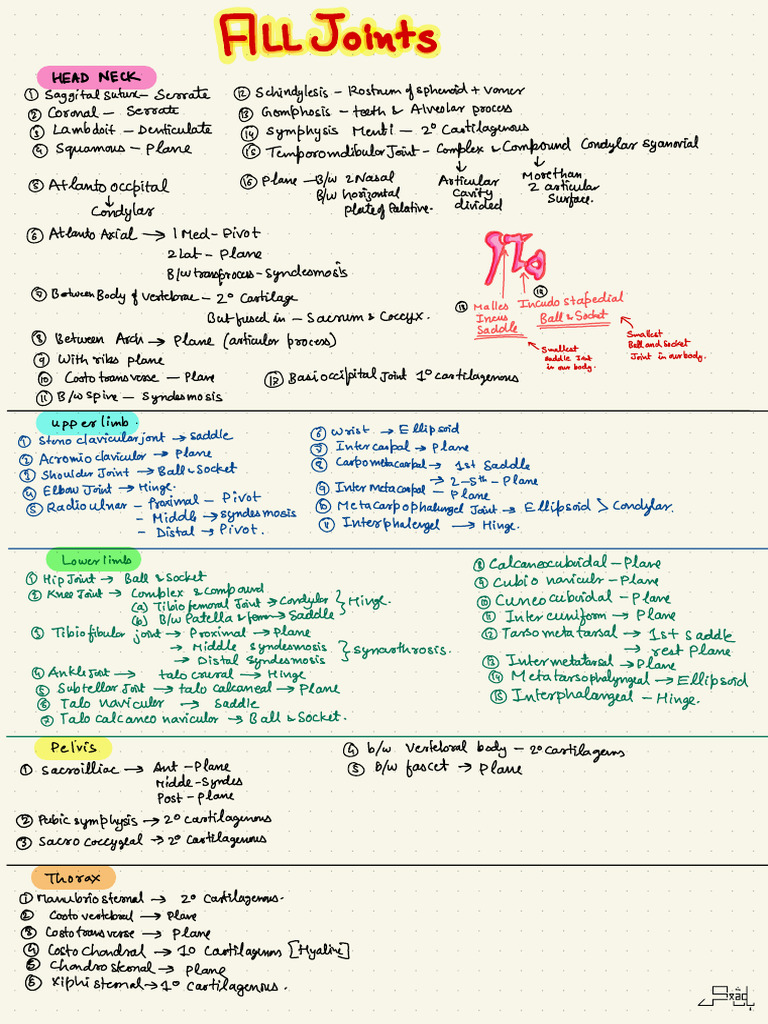 All Joints
HEAD NECK
① Saggital sutur - Serrate
② Coronal - Serrate
③ Lambdoit - Denticulate
④ Squamous - Plane
⑤ Atlanto occpital
↓
Condylar
⑥ Atlanto Axial → 1 Med - Pivot
2 Lat - Plane
B/w transprocess - Syndesmosis
⑦ Between Body of vertebrae - 2° Cartilage
But fused in - Sacrum & Coccyx.
⑧ Between Arch → Plane (articular process)
⑨ With ribs plane
⑩ Costo transverse - Plane
⑪ B/w spine - Syndesmosis
⑫ Schindylesis - Rostrum of sphenoid + vomer
⑬ Gomphosis - teeth & Alveolar process
⑭ Symphysis Menti - 2° Cartilagenous
⑮ Temporomdibular Joint - Complex & Compound Condylar syanorial
↓ ↓
Articular Cavity divided
More than 2 articular Surface.
⑯ Plane - B/w 2 Nasal
B/w horizontal
Plate of Palative.
⑰ Basioccipital Joint 1° cartilagenous
⑱ Malles
Incus
Saddle
Smallest
Saddle Joint
in our body.
⑲ Incudo stapedial
Ball & Socket
Smallest
Ball and Socket
Joint in our body.
Upper limb.
① Steno clavicular jont → saddle
② Acromio clavicular → Plane
③ Shoulder Joint → Ball & Socket
④ Elbow Joint → Hinge.
⑤ Radio ulnar - Proximal - Pivot
- Middle → syndesmosis
- Distal → Pivot.
⑥ Wrist → Ellipsoid
⑦ Inter carpal → Plane
⑧ Carpometacarpal → 1st Saddle
→ 2-5th - Plane
⑨ Inter Metacarpal - Plane
⑩ Metacarpophalengel Joint → Ellipsoid > Condylar.
⑪ Interphalengel → Hinge.
Lower limb
① Hip Joint → Ball & Socket
② Knee Joint → Complex & Compound
(a) Tibiofemoral Joint → Condylar } Hinge.
(b) B/w Patella & → Saddle
③ Tibiofibular joint → Proximal → Plane
→ Middle syndesmosis } synarthrosis.
→ Distal Syndesmosis
④ Ankle Joint → talo crural → Hinge
⑤ Subtellar Joint → talo calcaneal → Plane
⑥ Talo navicular → Saddle
⑦ Talo calcaneo navicular → Ball & Socket.
⑧ Calcaneocuboidal - Plane
⑨ Cubio naviculr - Plane
⑩ Cuneo cuboidal - Plane
⑪ Inter cuniform → Plane
⑫ Tarso metatarsal → 1st saddle
→ rest Plane
⑬ Intermetatarsal → Plane
⑭ Metatarsophalyngeal → Ellipsoid
⑮ Interphalangeal - Hinge.
Pelvis
① Sacroilliac → Ant - Plane
Midde - Syndes
Post - plane
② Pubic symphysis → 2° cartilagenous
③ Sacro coccygeal → 2° Cartilagenous
④ b/w Verteloral body - 2° cartilagens
⑤ B/w fascet → plane
Thorax
① Manubrio sternal → 2° Cartilagenous.
② Costo vertebral → Plane
③ Costotransverse → Plane
④ Costo Chondral → 1° Cartilagenous [Hyaline]
⑤ Chondro sternal → plane
⑥ Xiphi sternal → 1° Cartilagenous.